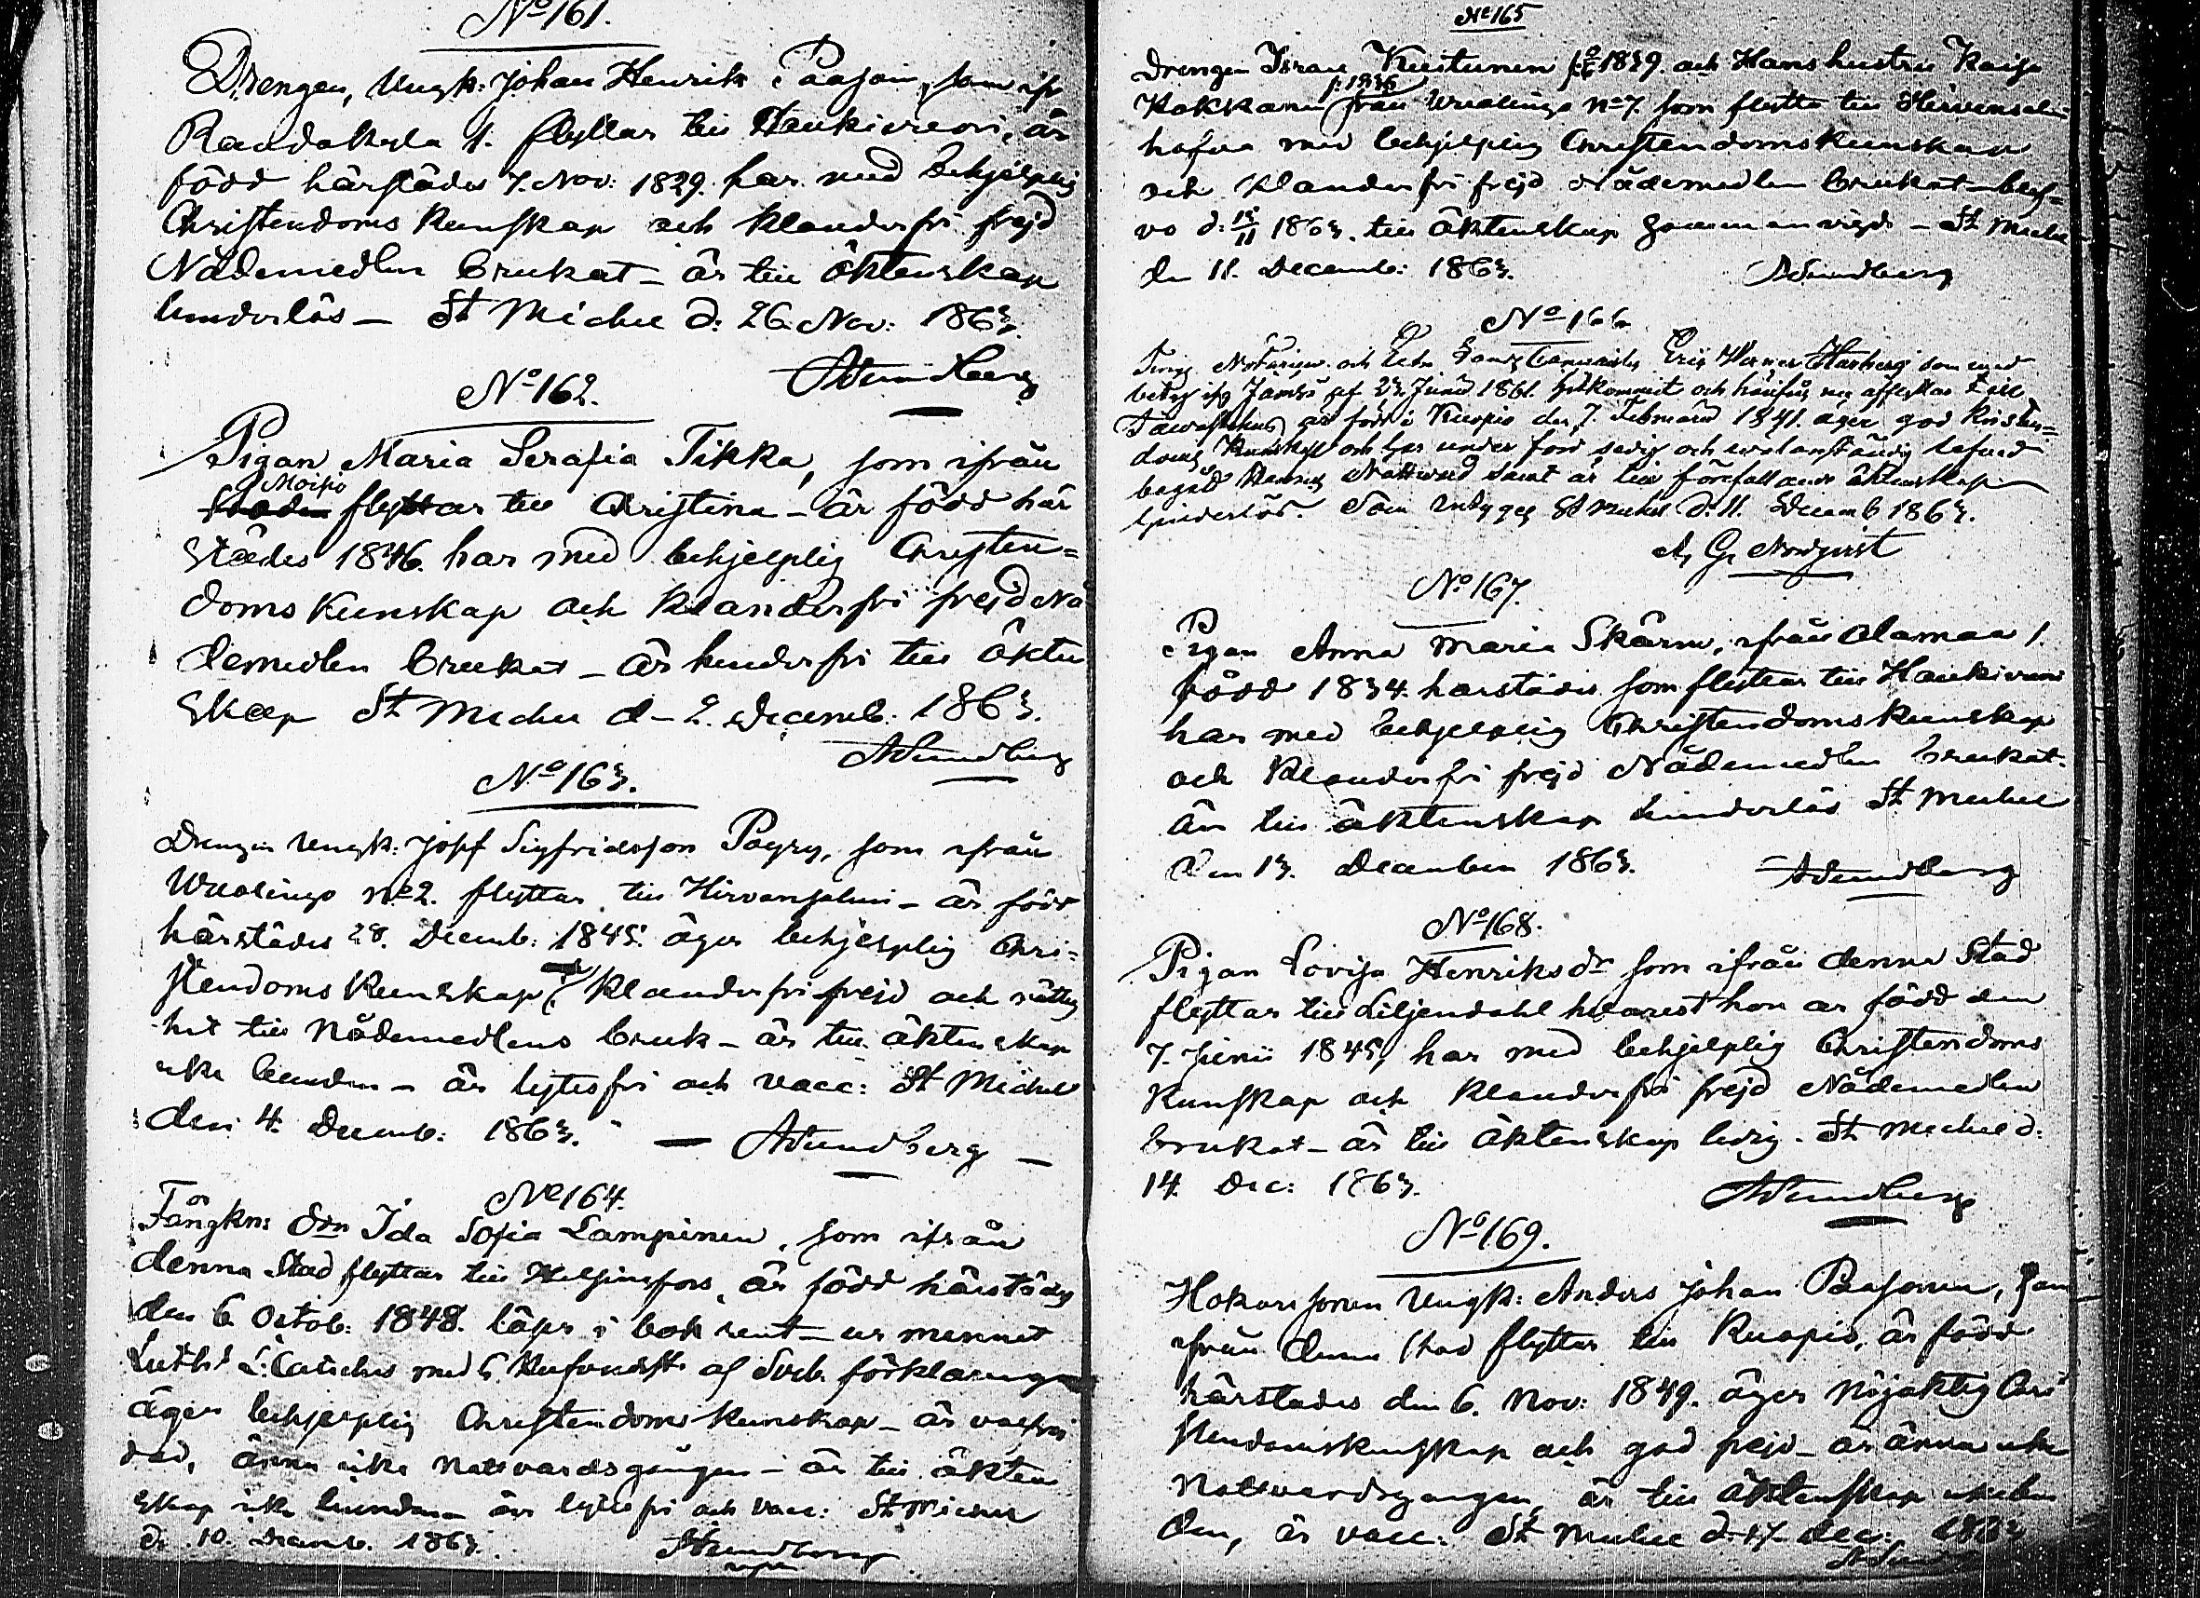 No 161.
Drengen, Ungk: Johan Henrik Paasoin, som ifr
Randakyla 1. flyttar till Haukivuori, är
född härstädes 7. Nov: 1829. har med behjelplig
Christendoms Kunskap och klanderfri frejd
Nådemedlen brukat – är till äktenskap
hinderlös – St Michel d: 26. Nov: 1863.
ASundberg
No 162.
Pigan Maria Serafia Tikka, som ifrån
Moipo
flyttar till Christina – är född här
städes 1846. har med behjelplig Christen=
doms Kunskap och klanderfri frejd Nå
demedlen brukat – är hinderfri till äkten
skap St Michel d – 2. Decemb: 1863.
ASundberg
No 163.
Drengen Ungk: Josef Sigfridsson Pöyry, som ifrån
Wuolingo No 2. flyttar till Hirvensalmi – är född
härstädes 28. Decemb: 1845. äger behjelplig Chri=
stendoms Kunskap, klanderfri frejd och rättig
het till Nådemedlens bruk – är till äktenskap
icke bunden – är lytesfri och vacc: St Michel
den 4. Decemb: 1863. – ASundberg –
No 164.
Fångkn: Don Ida Sofia Lampinen, som ifrån
denna Stad flyttar till Helsingfors, är född härstädes
den 6 Octob: 1848. läser i bok rent – ur minnet
Luth: L: Cateches med Sveb. förklaring
äger behjelplig Christendoms Kunskap – är
ännu icke nattvardsgången – är till äkten
skap icke bunden – är lytesfri och vacc: St Michel
d. 10. Decemb. 1863.
ASundberg
No 165
Drengen Israel Kiestunen 1839. och Hans hustru Kaisa
f: 1836
Kokkanen från Wuolingo No 7. som flytta till Hirvensalmi
hafva med behjelplig Christendoms Kunskap
och klanderfri frejd Nådemedlen brukat – blef=
vo d: 15/11 1863. till äktenskap sammanvigde – St Michel
den 11. Decemb: 1863. ASundberg
No 166
Notarien och Eric Werner som med
betyg ifr Jämsä af 23 Junii 1861. hitkommit och härifrån nu afflyttar till
Tawastehus, är född i Kuopio den 7. Februarii 1841. äger god kristen=
doms Kunskap och har under förd sedig och välanständig lefnad
begått Herrans Nattvard samt är till förefallande äktenskap
hinderlös. Som intygas St Michel d. 11. Decemb 1863.
A, G, Nordqvist
No 167.
Pigan Anna Maria Skärm, ifrån Olamaa 1.
född 1834. härstädes som flyttar till Haukivuori
har med behjelplig Christendoms Kunskap
och klanderfri frejd Nådemedlen brukat.
är till äktenskap hinderlös St Michel
den 13. December 1863. ASundberg
No 168.
Pigan Lovisa Henriksdr som ifrån denna Stad
flyttar till Liljendahl hvarest hon är född den
7. Junii 1845, har med behjelplig Christendoms
Kunskap och klanderfri frejd Nådemedlen
brukat – är till äktenskap ledig. St Michel d:
14. Dec: 1863.
ASundberg
No 169.
Hökaresonen Ungk: Anders Johan Paasonen, som
ifrån denna stad flyttar till Kuopio, är född
härstädes den 6. Nov: 1849. äger nöjaktig Chri
stendomskunskap och god frejd – är ännu icke
nattvardsgången, är till äktenskap icke bun
den, är vacc: St Michel d. 17 dec: 1863